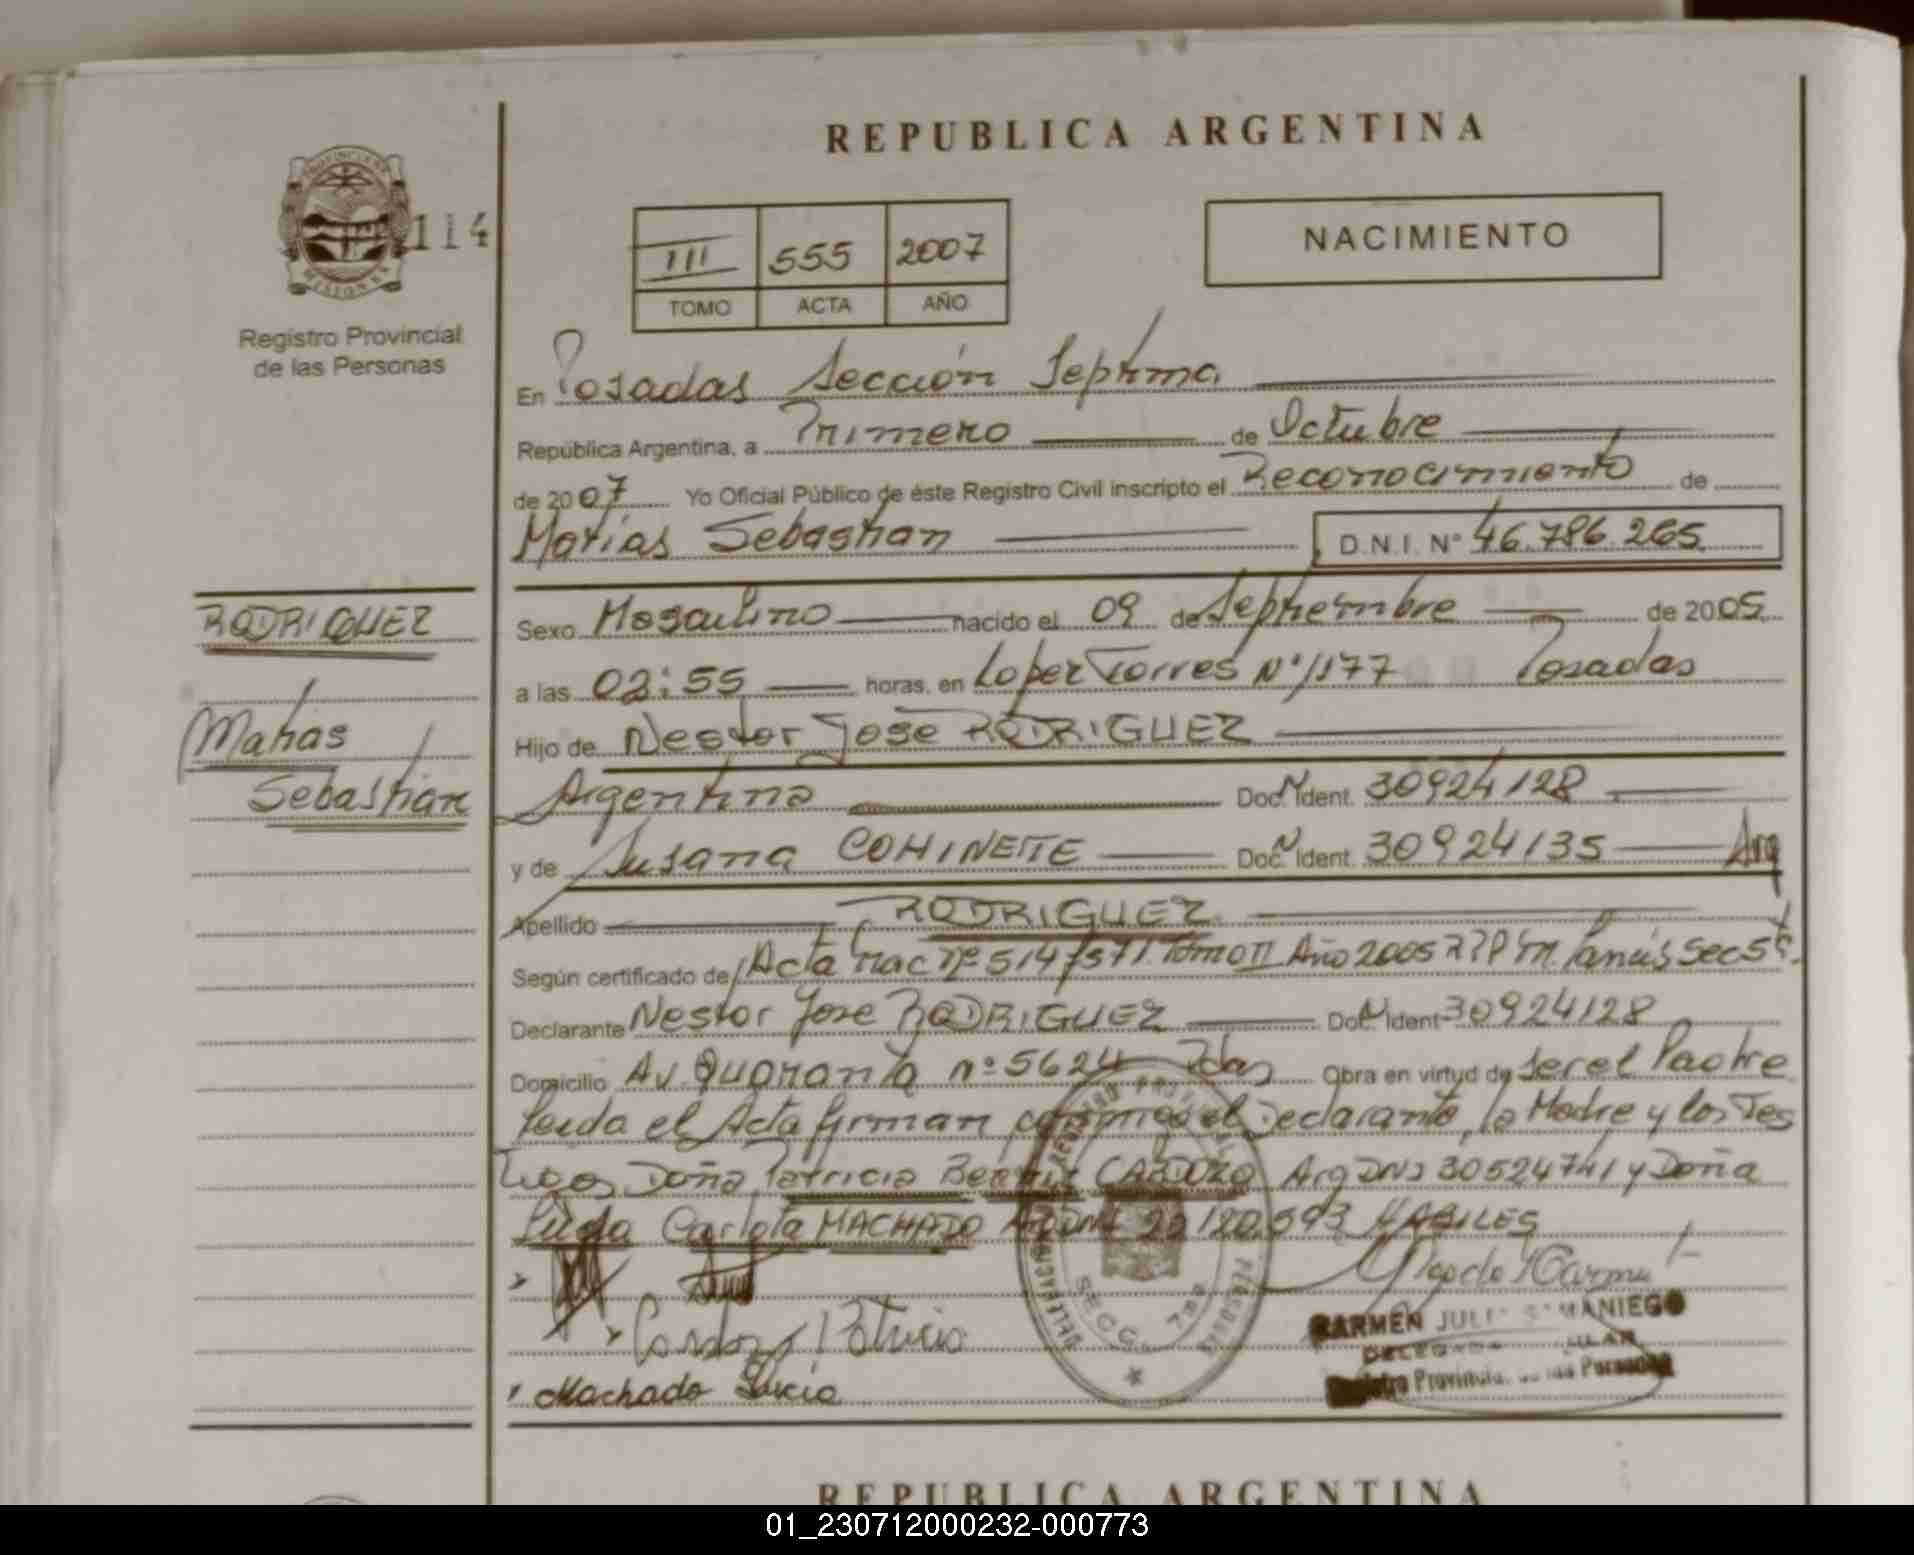 REPUBLICA ARGENTINA
114
III 555 2007
TOMO ACTA AÑO
NACIMIENTO
Registro Provincial
de las Personas
En Posadas Sección Septima
República Argentina, a Primero de Octubre
de 2007 Yo Oficial Público de éste Registro Civil inscripto el Reconocimiento de
Matias Sebastian D.N.I. N° 46.786.265
RODRIGUEZ
Matias
Sebastian
Sexo Masculino nacido el 09 de Septiembre de 2005
a las 02:55 horas, en Lopez Torres N° 1177 Posadas
Hijo de Nestor Jose RODRIGUEZ
Argentina Doc. N Ident. 30924128
y de Susana COHINETE Doc. N Ident. 30924135 Arg
Apellido RODRIGUEZ
Según certificado de Acta Nac N° 514 Tomo II Año 2005
Declarante Nestor Jose RODRIGUEZ Doc. N Ident 30924128
Domicilio Av. Quaranta n° 5624 Pdas Obra en virtud de ser el Padre
Leida el Acta firman conmigo el Declarante, la Madre y los Tes
tigos Doña Patricia Beatriz CARDOZO Arg DNI 30524741 y Doña
Carlota MACHADO Arg DNI 120.593 HABILES
Cardozo Patricia
Machado Lucia
SECC. 7ma
CARMEN JULI SAMANIEGO
DELEGADA TITULAR
Registro Provincial de las Personas
REPUBLICA ARGENTINA
01_230712000232-000773